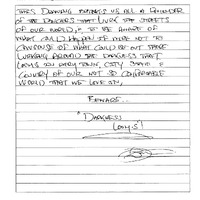 THIS DRAWING BRINGS US ALL A REMINDER
OF THE DANGERS THAT LURK THE STREETS
OF OUR WORLD, TO BE AWARE OF
WHAT COULD HAPPEN IF WERE NOT TO
CAUTIOUS OF WHAT COULD BE OUT THERE
LURKING AROUND THE DARKNESS THAT
IN EVERY TOWN, CITY STATE &
COUNTRY OF OUR NOT SO COMFORTABLE
WORLD THAT WE LIVE IN,
BEWARE...
"DARKNESS